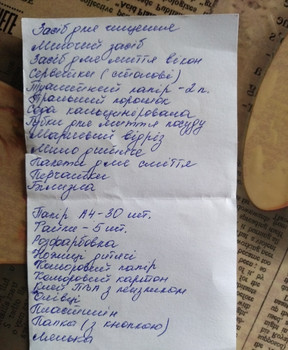 Засіб для чищення
Миючий засіб
Засіб для миття вікон
Серветки (столові)
Туалетний папір - 2 п.
Пральний порошок
Сода кальцинована
Губки для миття посуду
Марлевий відріз
Мило рідке
Пакети для сміття
Перчатки
Білизна
Папір А4 - 30 шт.
Файли - 5 шт.
Розфарбовка
Ножиці дитячі
Кольоровий папір
Кольоровий картон
Клей ПВА з пензликом
Олівці
Пластилін
Папка (з кнопкою)